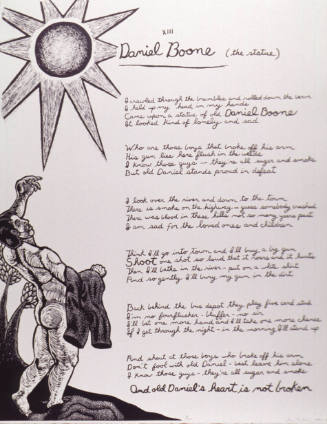 XIII
Daniel Boone (the statue)
I crawled through the brambles and rolled down the
I held up my head in my hands
Came upon a statue of old Daniel Boone
It looked kind of lonely and sad
Who are those boys that broke off his arm
His gun lies here flush in the
I know those guys - they're all sugar and smoke
But old Daniel stands proud in defeat
I look over the river and down to the town
There is smoke on the highway - guess somebody crashed
There was blood in these hills not so many years past
I am sad for the loved ones and children
Think I'll go into town and I'll buy a big gun
Shoot one shot so loud that it roars and it hurts
Then I'll bathe in the river - put on a white shirt
And so gently I'll bury my gun in the dirt
Back behind the bus depot they play five card stud
I'm no fourflusher - bluffer - no sir
I'll bet one more hand and I'll take one more chance
If I get through the night - in the morning I'll stand up
And shout at those boys who broke off his arm
Don't fool with old Daniel - best leave him alone
I know those guys - they're all sugar and smoke
And old Daniel's heart is not broken